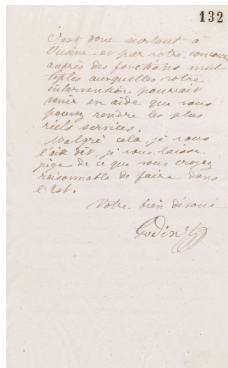 132
C'est donc surtout à
Guise et par votre concours
auprès des fonctions mul-
tiples auxquelles votre
intervention pourrait
venir en aide que vous
pouvez rendre les plus
réels services.
Malgré cela, je vous
l'ai dit, je vous laisse
juge de ce que vous croyez
raisonnable de faire dans
l'état.
Votre bien dévoué
Godin